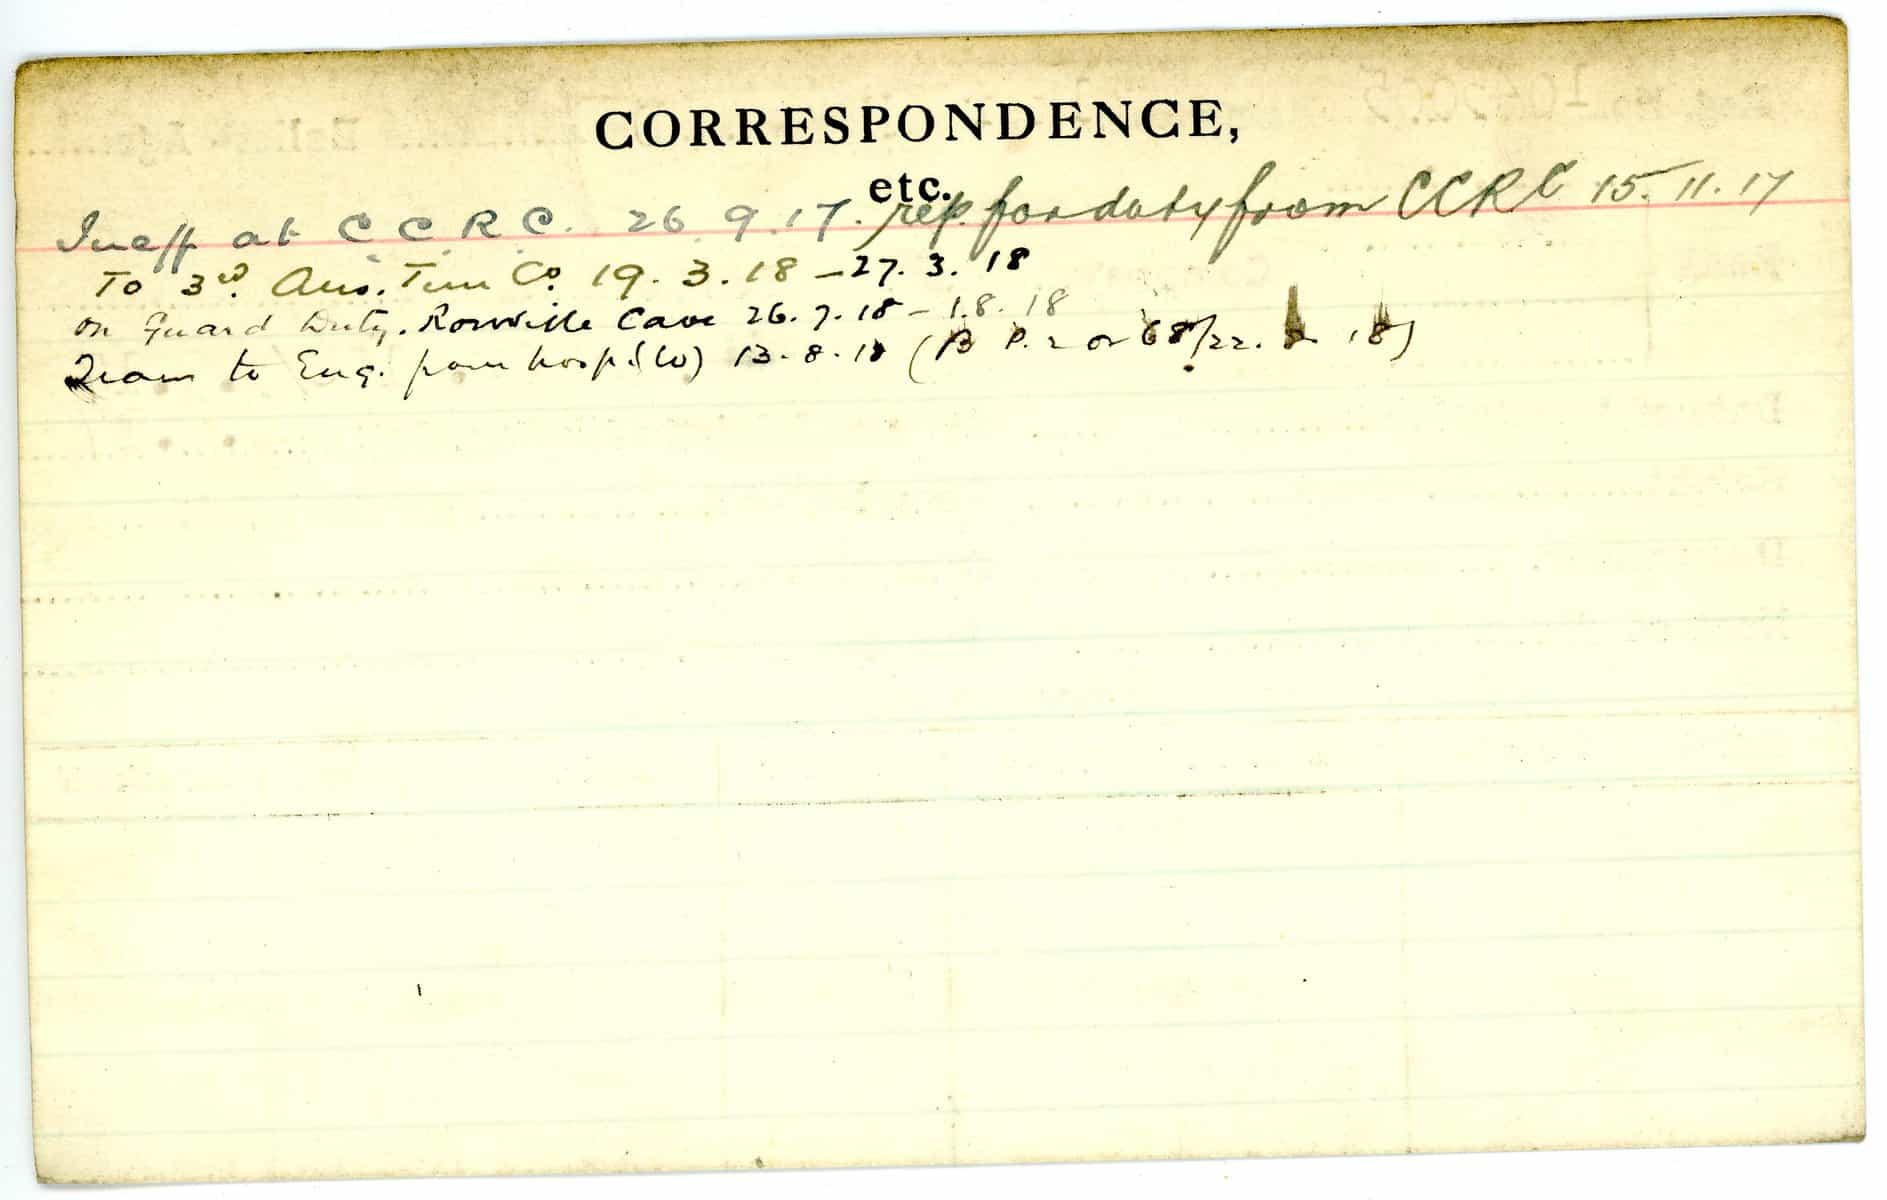 CORRESPONDENCE,
etc.
Ineff at C C R C. 26.9.17. rep. for duty from CCRC 15.11.17
To 3rd. Aus. Tun Co. 19.3.18 – 27.3.18
On Guard Duty. Ronville Cave 26.7.18 – 1.8.18
Trans to Eng. from hosp. (W) 13.8.18 (B P.2 Or 68/22.8.18)